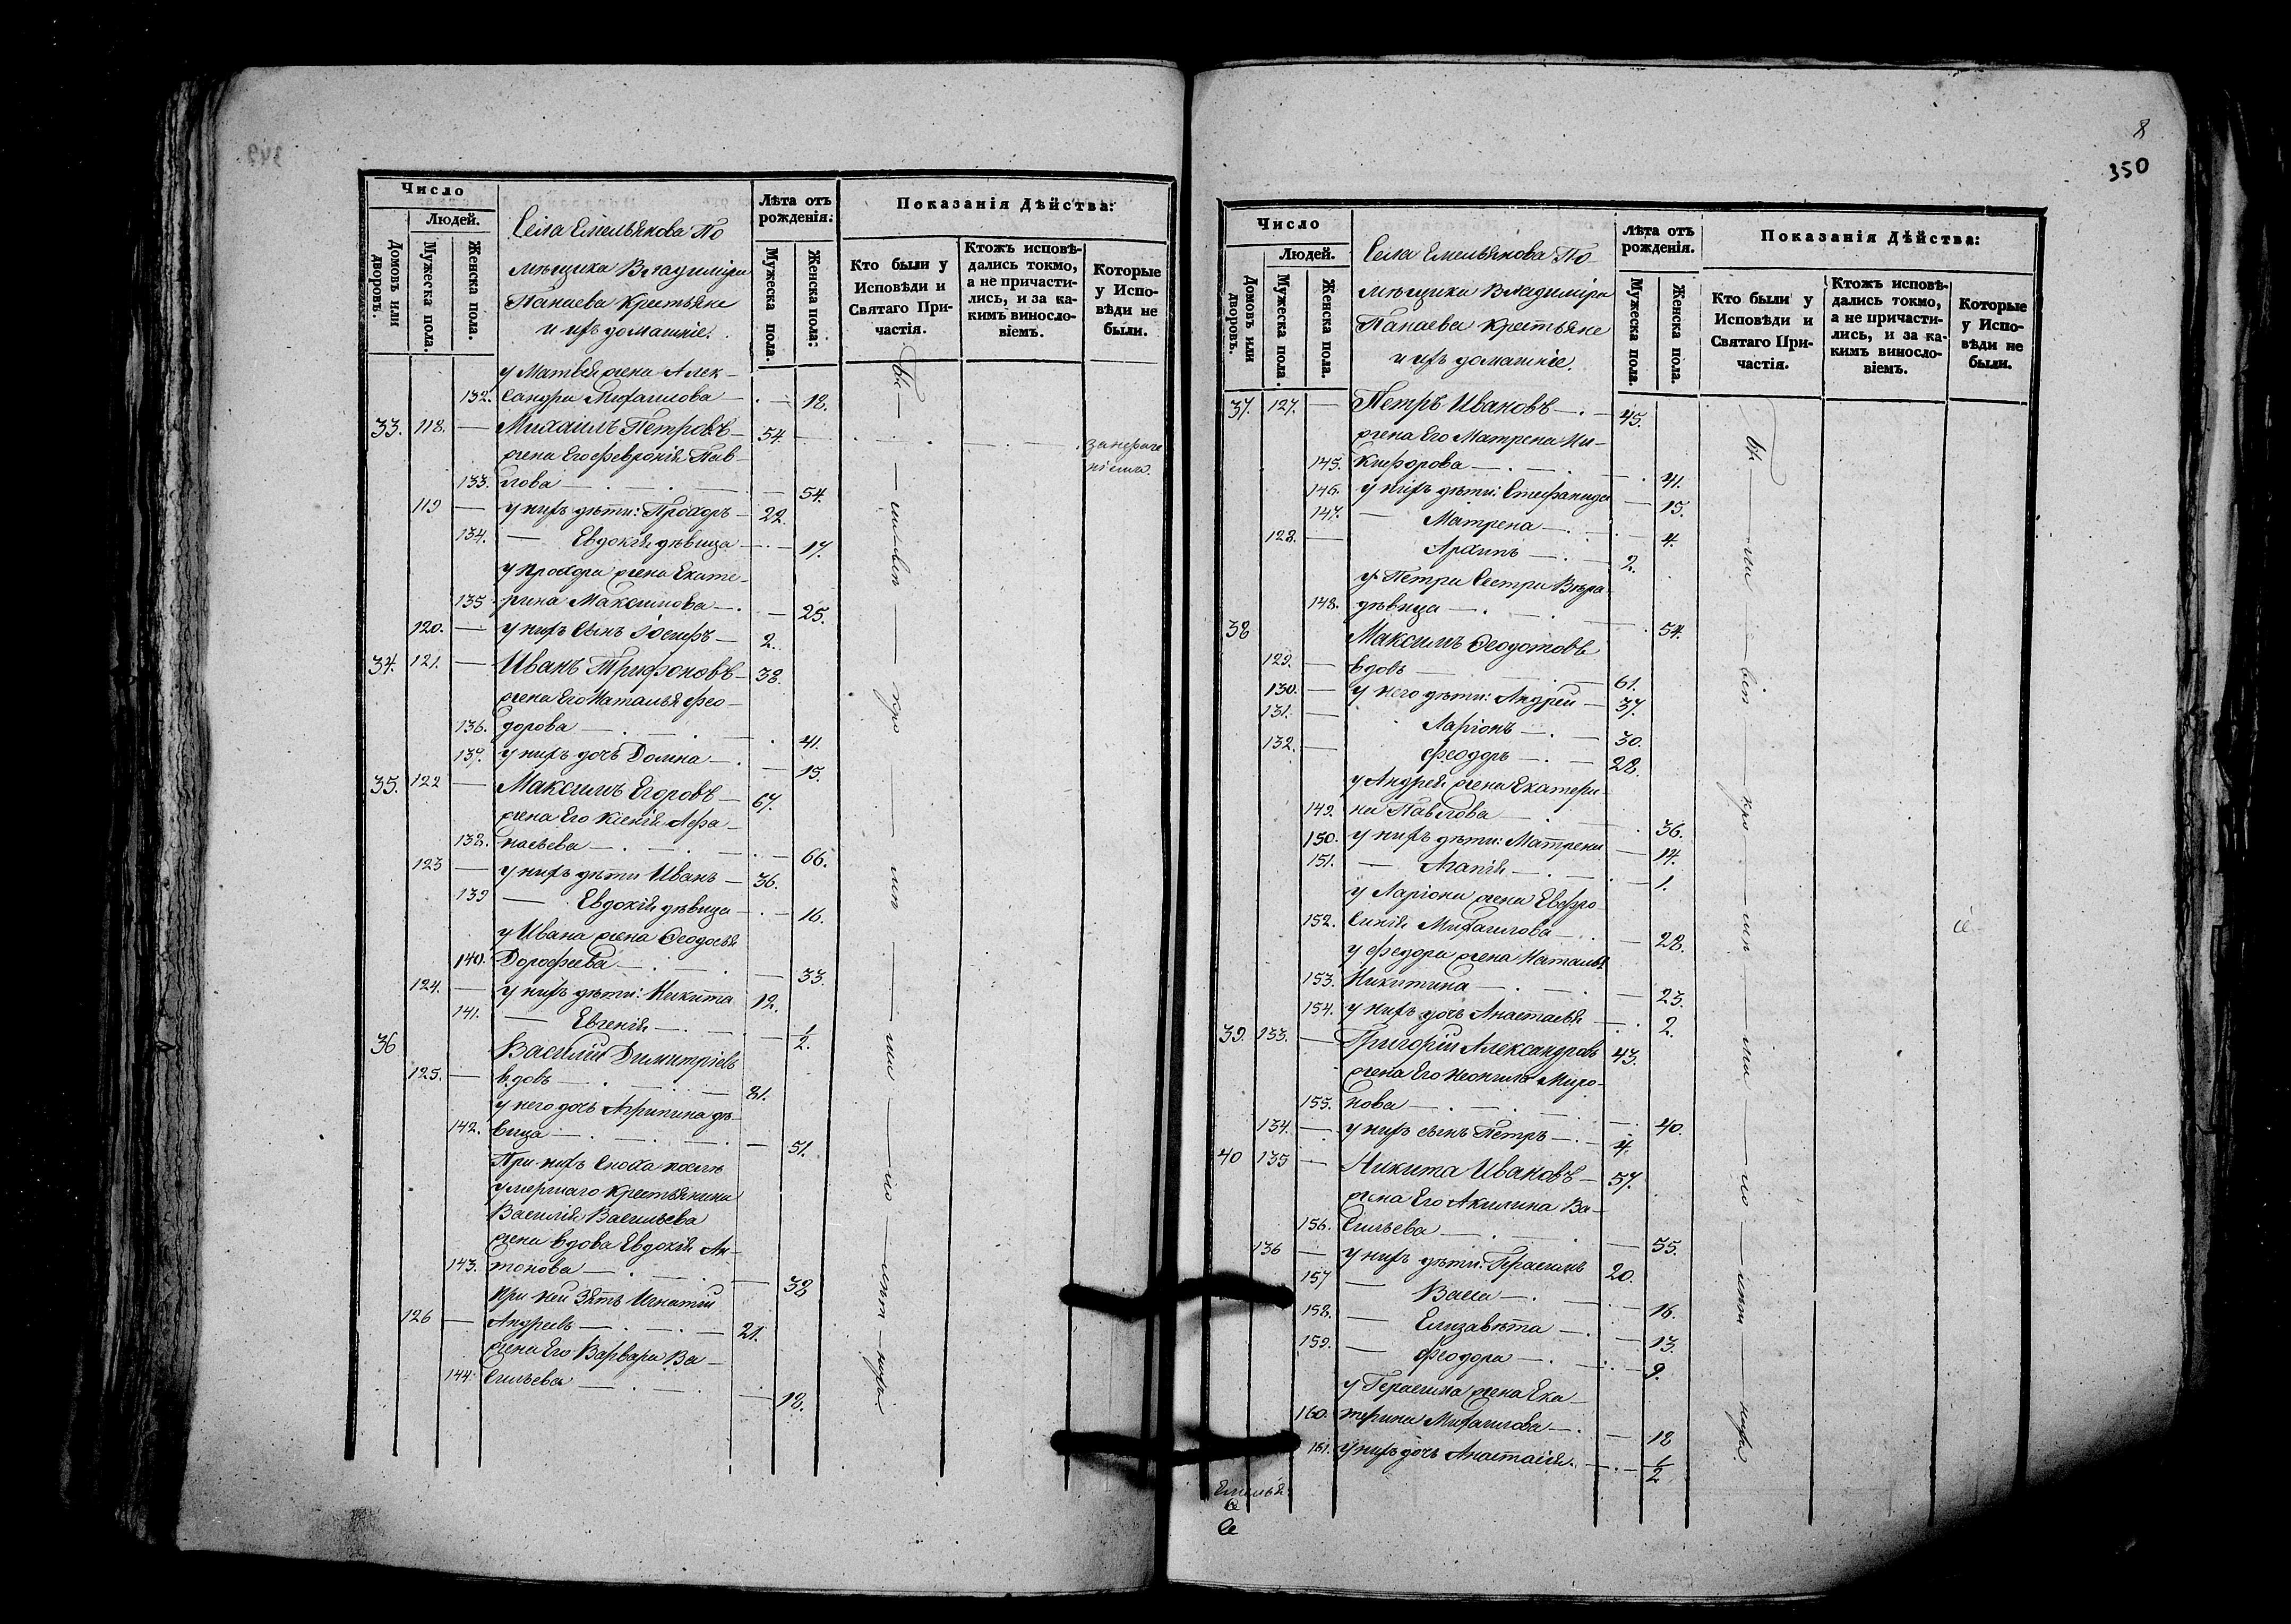 Число
Людей.
Домовъ или дворовъ.
Мужеска пола.
Женска пола.
Села Емельянова По
мѣщика Владиміра
Панаева Крестьяне
и ихъ домашніе.
Лѣта отъ рожденія:
Мужеска пола.
Женска пола:
Показанія Дѣйства:
Кто были у Исповѣди и Святаго Причастія.
Ктожъ исповѣдались токмо, а не причастились, и за какимъ винословіемъ.
Которые у Исповѣди не были.
у Матвея жена Алек–
132. сандра Михаилова — 18.
33. 118. — Михаилъ Петровъ — 54.
жена Его Феврония Пав–
133. лова — 54.
119 — у нихъ дѣти: Прохоръ — 22.
134. — Евдокія дѣвица — 17.
у Прохора жена Екате–
135 рина Максимова — 25.
120. — у нихъ сынъ Іосифъ — 2.
34. 121. — Иванъ Трифоновъ — 38.
жена Его Наталья Фео–
136. дорова — 41.
137. у нихъ дочь Домна — 15.
35. 122 — Максимъ Егоровъ — 67.
жена Его Ксенія Афа–
138. насьева — 66.
123 — у нихъ дѣти Иванъ — 36.
139 — Евдокія дѣвица — 16.
у Ивана жена Ѳеодосья
140. Дорофеева — 33.
124. — у нихъ дѣти: Никита 12.
141. — Евгенія — 1/2.
36 Василій Димитріевъ
125. — вдовъ — 81.
у него дочь Агрипина дѣ–
142. вица — 51.
При нихъ Сноха послѣ
умершаго крестьянина
Василія Васильева
жена вдова Евдокія Ан–
143. тонова — 38
при ней Зять Игнатій
126 — Андреевъ — 21.
жена Его Варвара Ва–
144. сильева — 18.
8
350
Число
Людей.
Домовъ или дворовъ.
Мужеска пола.
Женска пола.
Села Емельянова По
мѣщика Владиміра
Панаева Крестьяне
и ихъ домашніе.
Лѣта отъ рожденія.
Мужеска пола.
Женска пола.
Показанія Дѣйства:
Кто были у Исповѣди и Святаго Причастія.
Ктожъ исповѣдались токмо, а не причастились, и за какимъ винословіемъ.
Которые у Исповѣди не были.
37. 127. — Петръ Ивановъ — 45.
жена Его Матрена Ни–
145. кифорова — 41.
146. у нихъ дѣти: Стефанида — 15.
147. — Матрена — 4.
128. — Архипъ — 2.
у Петра Сестра Вѣра
148. дѣвица — 54.
38 Максимъ Ѳеодотовъ
129. — вдовъ — 61.
130. — у него дѣти: Андрей — 37.
131. — Ларіонъ — 30.
132. — Феодоръ — 28.
у Андрея жена Екатери–
149. на Павлова — 36.
150. у нихъ дѣти: Матрена — 14.
151. — Агапія — 1.
у Ларіона жена Евфро–
152. синія Михаилова — 28.
у Федора жена Наталья
153. Никитина — 23.
154. у нихъ дочь Анастасья — 2.
39. 133. — Григорій Александровъ 43.
жена Его Неонила Миро–
155. нова — 40.
134. — у нихъ сынъ Петръ — 4.
40 135 — Никита Ивановъ — 57.
жена Его Акилина Ва–
156. сильева — 55.
136 — у нихъ дѣти: Герасимъ 20.
157 — Васса — 16.
158. — Елизавѣта — 13.
159. — Феодора — 9.
у Герасима жена Ека–
160. терина Михаилова — 18
161. у нихъ дочь Анастасія. — 1/2